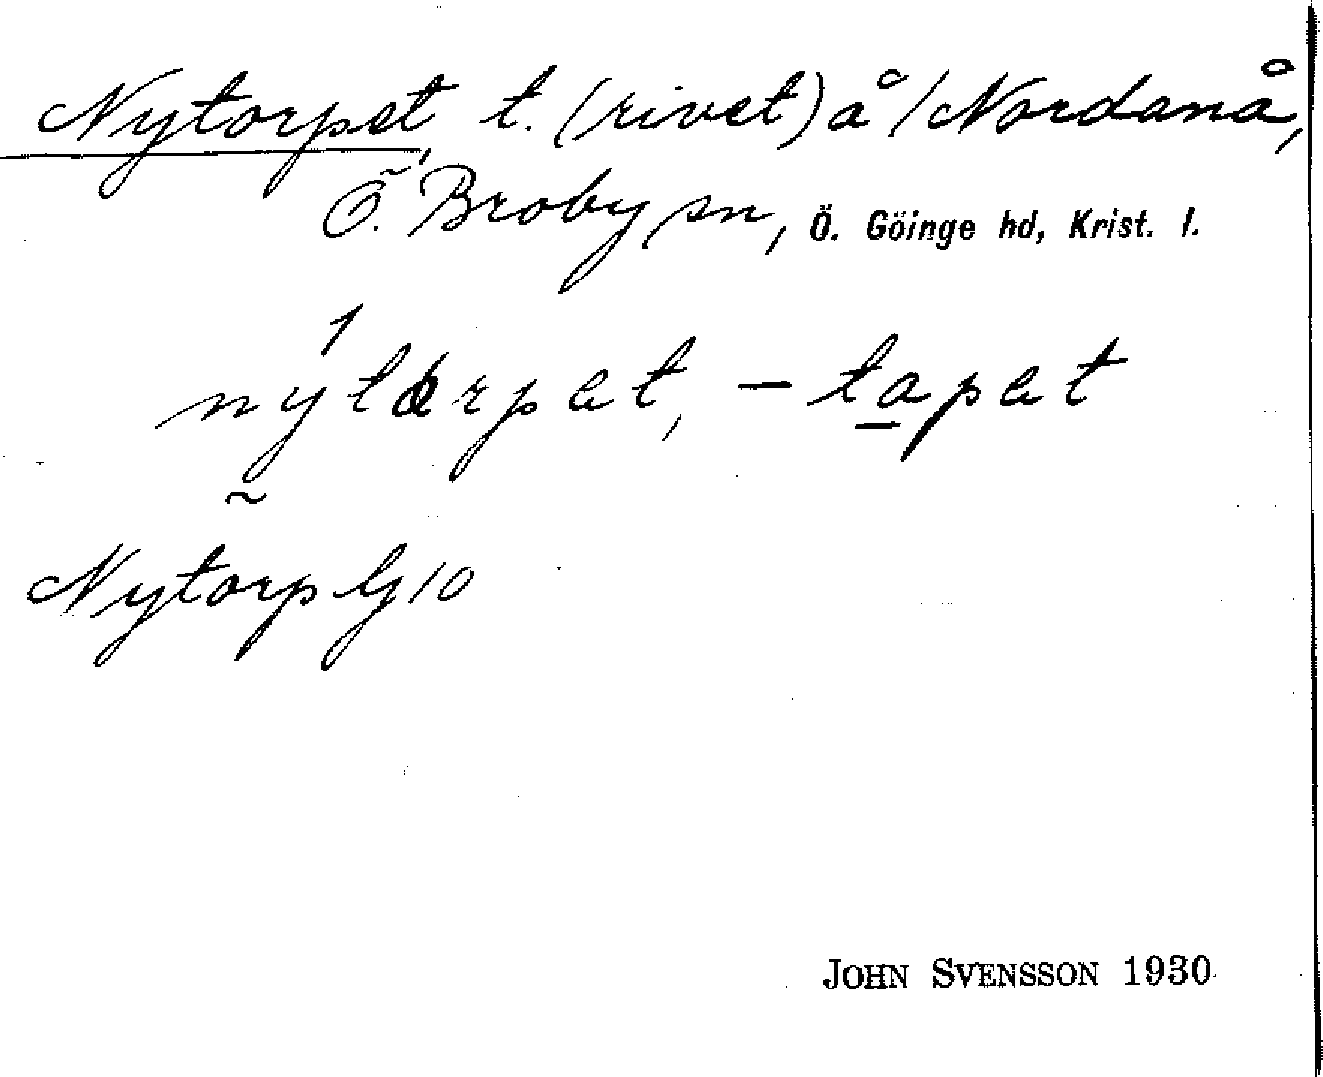 Nytorpet, t. (rivet) å /Nordanå,
Ö. Broby sn, Ö. Göinge hd, Krist. l.
nýtorpet, –tapet
Nytorp G10
JOHN SVENSSON 1930